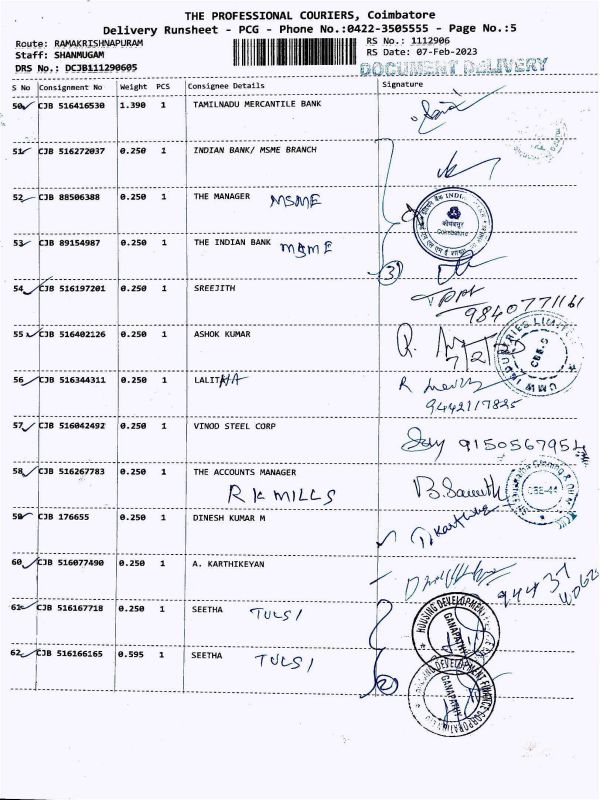 THE PROFESSIONAL COURIERS, Coimbatore
Delivery Runsheet - PCG - Phone No.:0422-3505555 - Page No.:5
Route: RAMAKRISHNAPURAM
Staff: SHANMUGAM
DRS No.: DCJB111290605
RS No.: 1112906
RS Date: 07-Feb-2023
DOCUMENT DELIVERY
S No Consignment No Weight PCS Consignee Details Signature
50 CJB 516416530 1.390 1 TAMILNADU MERCANTILE BANK
51 CJB 516272037 0.250 1 INDIAN BANK/ MSME BRANCH
52 CJB 88506388 0.250 1 THE MANAGER MSME
53 CJB 89154987 0.250 1 THE INDIAN BANK MSME
3
54 CJB 516197201 0.250 1 SREEJITH
9840771161
55 CJB 516402126 0.250 1 ASHOK KUMAR
56 CJB 516344311 0.250 1 LALITHA
9442117825
57 CJB 516042492 0.250 1 VINOD STEEL CORP
9150567954
58 CJB 516267783 0.250 1 THE ACCOUNTS MANAGER
RK MILLS
CBE-44
59 CJB 176655 0.250 1 DINESH KUMAR M
T. Karthika
60 CJB 516077490 0.250 1 A. KARTHIKEYAN
61 CJB 516167718 0.250 1 SEETHA TULSI
HOUSING DEVELOPMENT
GANAPATHY
62 CJB 516166165 0.595 1 SEETHA TULSI
2
HOUSING DEVELOPMENT FINANCE CORPORATION
GANAPATHY